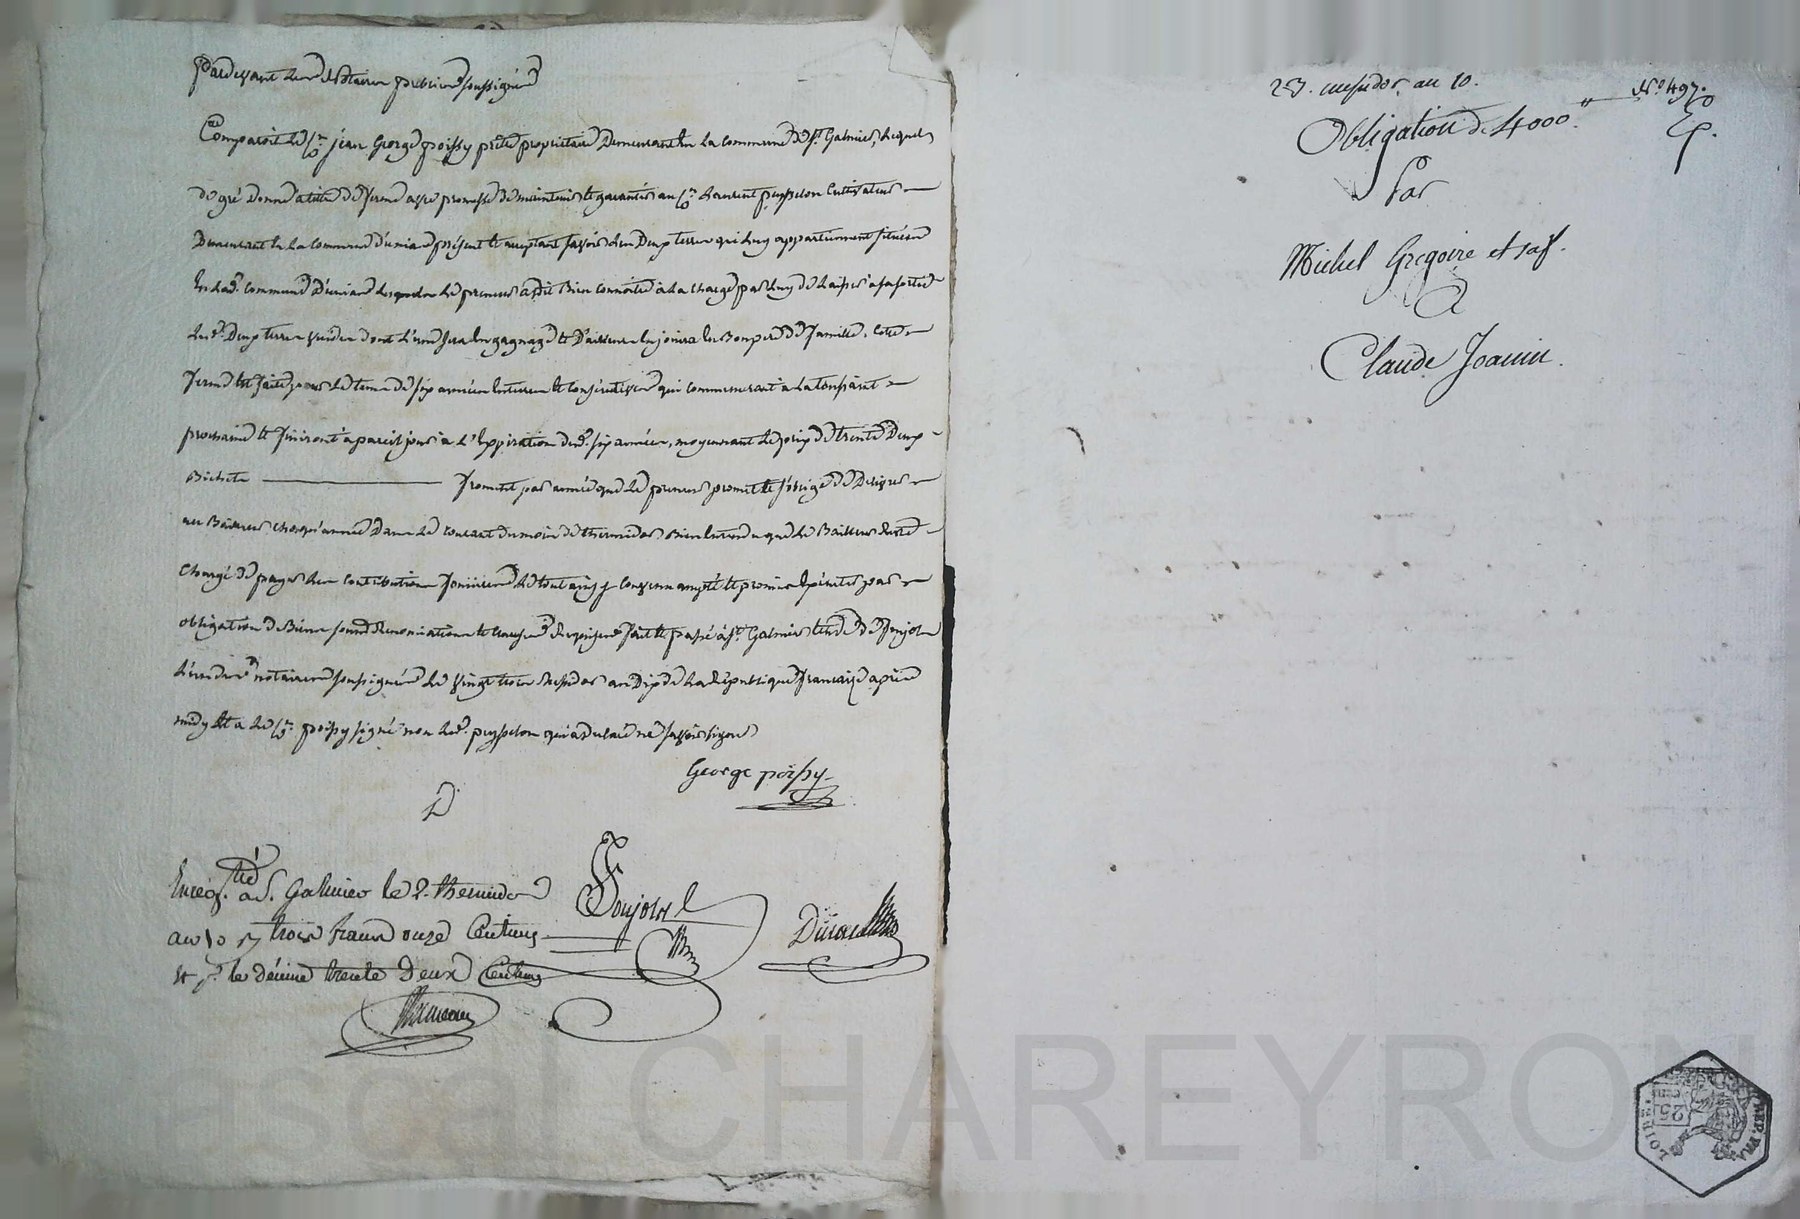 Pardevant les notaires publics soussignés
Comparoit le Cn jean George poissy prêtre proprietaire Demeurant en la commune de St Galmier, lequel
de gré donne a titre de ferme avec promesse de maintenir et garantir au Cn Laurent puypelon Cultivateur
Demeurant en la commune d'aveizieu présent et acceptant savoir les Deux terres qui luy appartiennent situées
en lad. commune le preneur a dit Bien connoitre à la charge par luy de laisser a sa sortie
lesd. Deux terres dont l'une sera en gagnage et D'ailleurs en jouira en Bon pere de famille. cette
ferme est faite pour le terme de six années entieres et consécutives qui commenceront a la toussaint
prochaine et finiront a pareil jour a l'Expiration desd. six années, moyennant le prix de trente Deux
Bichets froment par année que le preneur promet et s'oblige de Delivrer
au Bailleur chaque année Dans le courant du mois de thermidor Bien entendu que le Bailleur reste
chargé de payer les contributions foncieres le tout ainsy convenu accepté et promis Exécuter par
obligation de Biens soumissions renonciations et clauses requises fait et passé à St Galmier étude de fonjols
l'un des notaires soussignés le vingt trois messidor an Dix de la République française après
midy et a le Cn poissy signé non led. puypelon qui a declaré ne savoir signer
George poissy
Enregtré a St Galmier le 2 thermidor
an 10 trois francs onze Centimes
et pr le décime trente Deux Centimes
Fonjols
23. messidor an 10.
No 497.
Obligation de 4000"
Par
Michel Gregoire et sa f.
A
Claude Joanin.
LOIRE
REP. FRA.
25
CEN
Pascal CHAREYRON